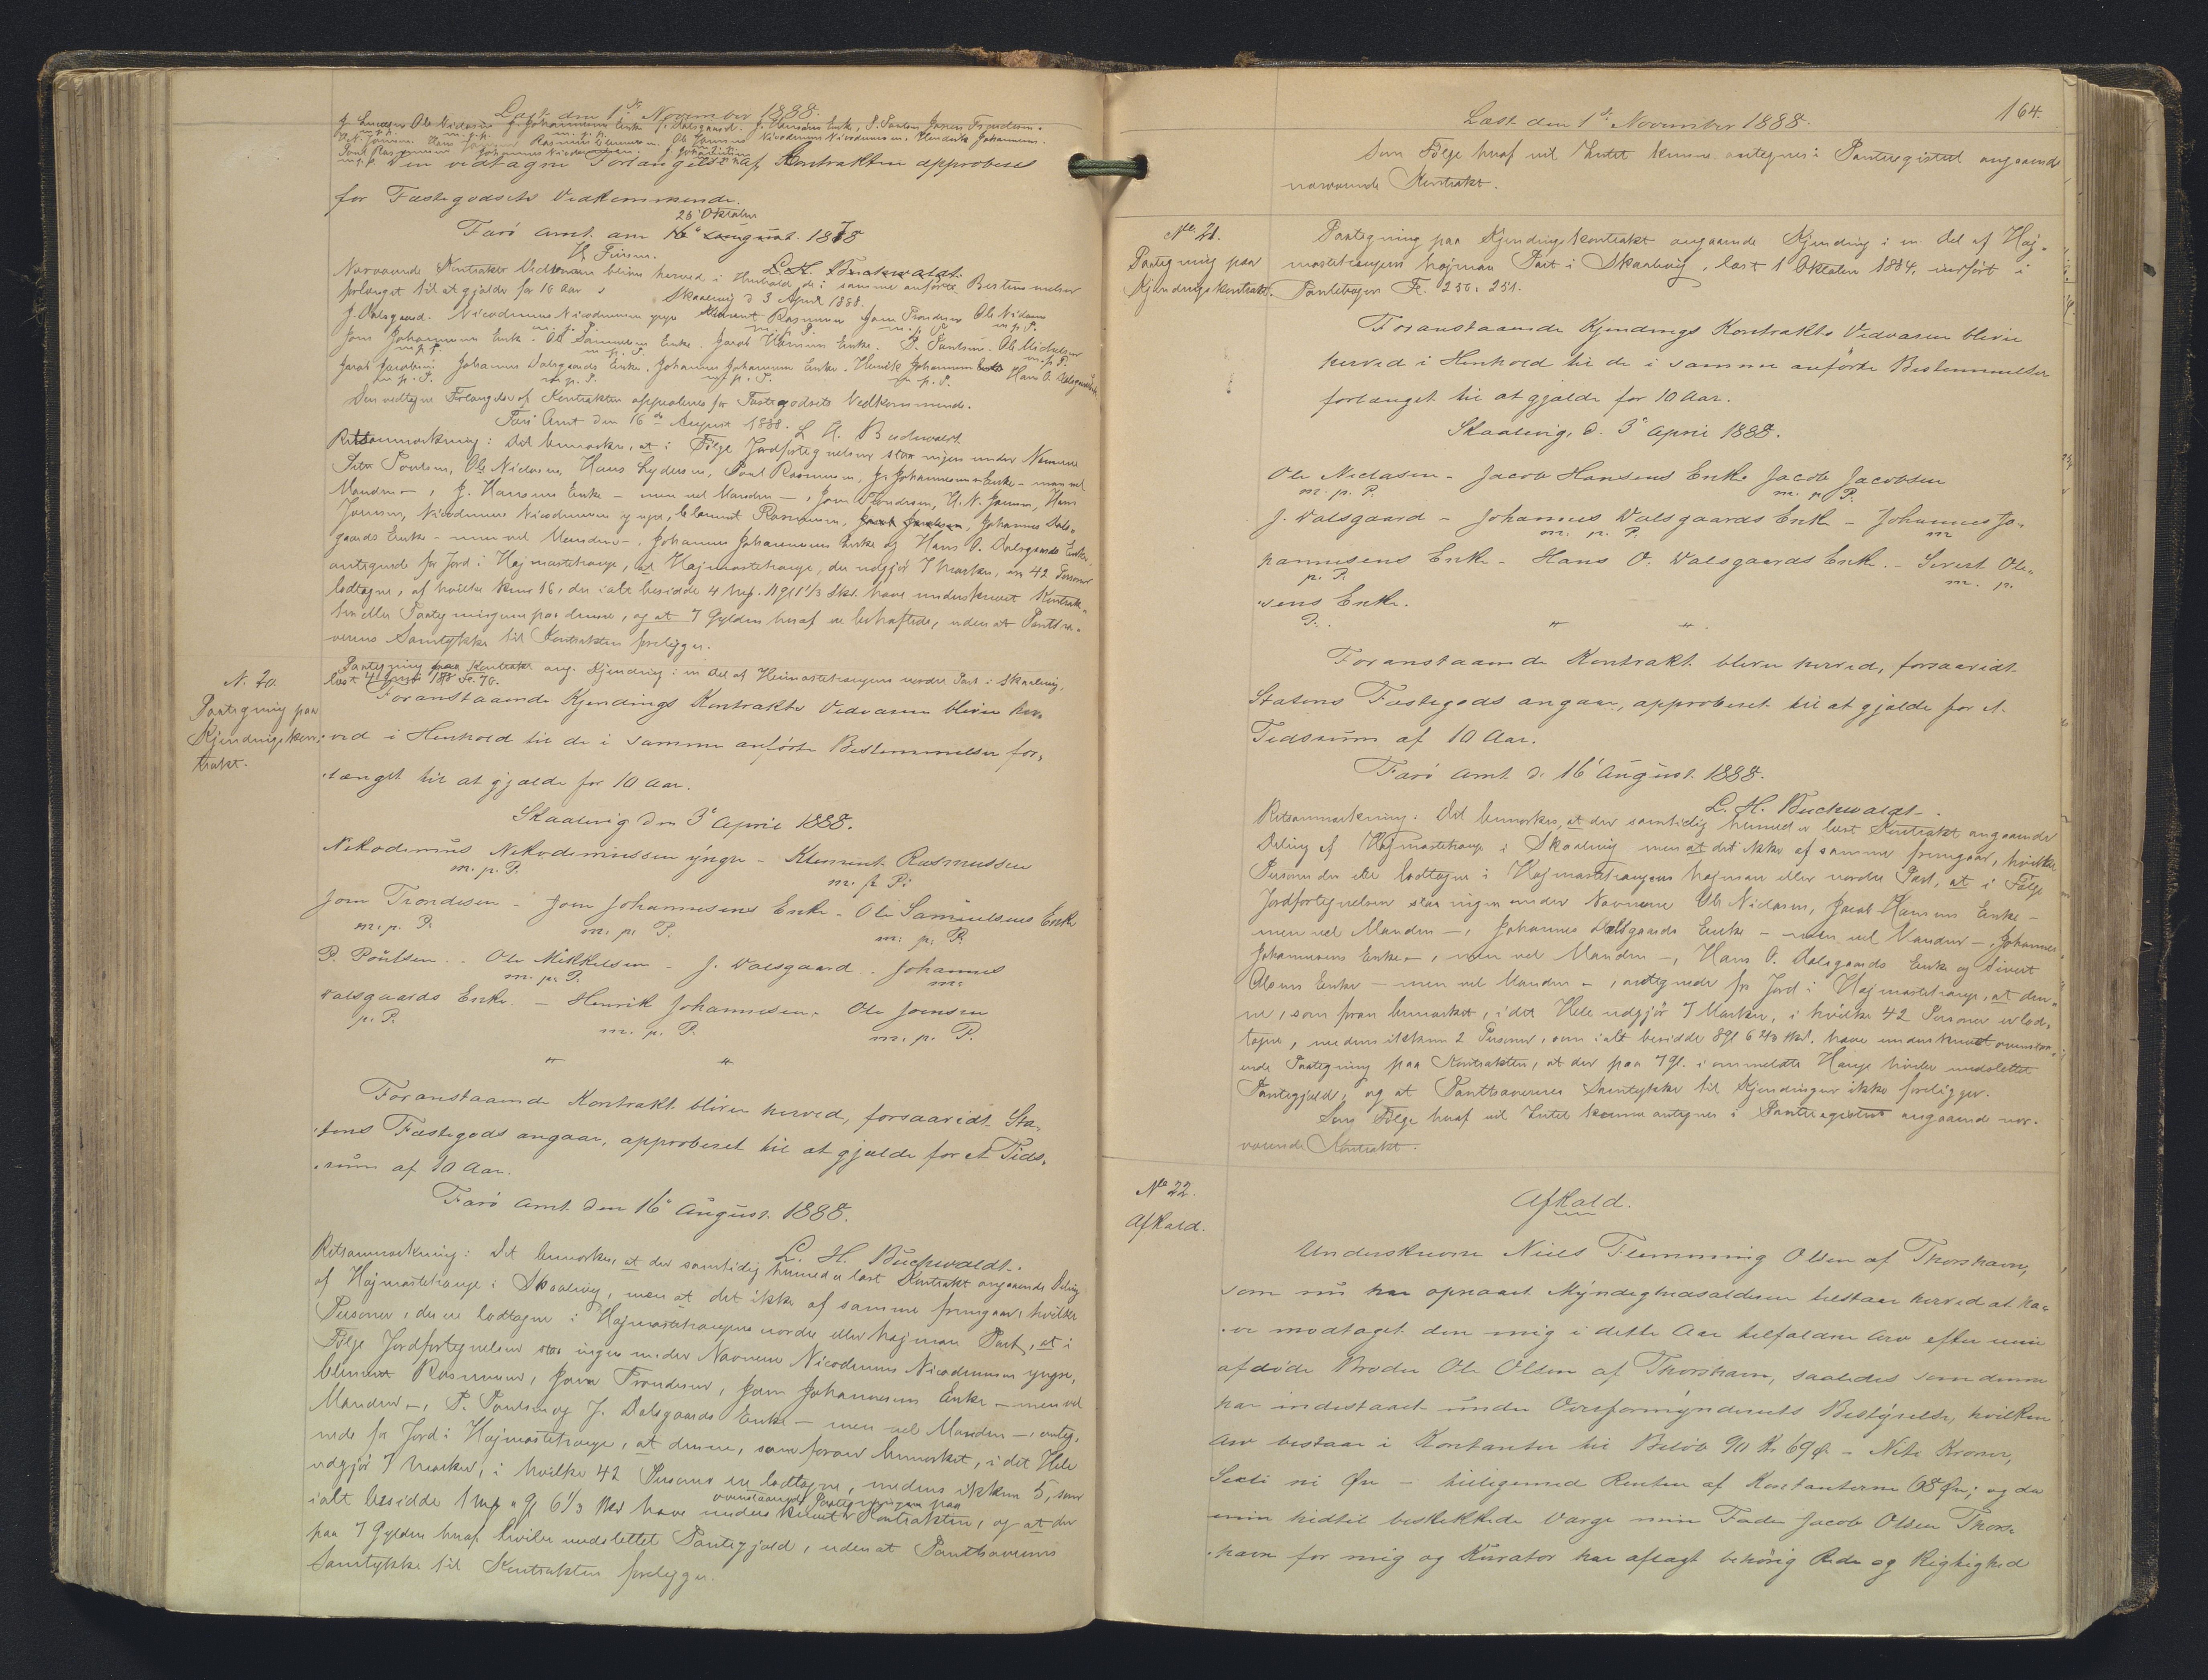 Læst den 1ste November 1888.
J. Hansen Ole Niclasen J. Johannesens Enke J. Dalsgaard. J. Hansens Enke, P. Poulsen Joen Trondesen.
H. N. Joensen Hans Joensen Rasmus Clementsen. Ole Joensens Nicodemus Nicodemussen. Hendrik Johannesen.
Poul Rasmussen Johannes
Den vedtagne Forlængelse af Kontrakten approberes
for Fæstegodsets Vedkommende.
26' Oktober
Færö Amt den 16' August 1878
H. Finsen.
Nærværende Kontrakts Vedvaren bliver herved i Henhold til de i samme anførte Bestemmelser
L. H. Buchwaldt.
forlænget til at gjælde for 10 Aar
Skaalevig d 3 April 1888.
J. Dalsgaard. Nicodemus Nicodemussen yngre Klement Rasmussen Joen Trondesen Ole Niclasen
m. p. P. m. p. P. m. p. P. m. p. P.
Joen Johannesens Enke. Ole Samuelsens Enke. Jacob Hansens Enke. P. Poulsen. Ole Michelsen
m. p. P. m. p. P. m. p. P.
Jacob Jacobsen Johannes Dalsgaards Enke. Johannes Johannesens Enke. Henrik Johannesen Hans O. Dalsgaards Enke
m. p. P. m. p. P. m. p. P. m. p. P.
Den vedtagne Forlængelse af Kontrakten approberes for Fæstegodsets Vedkommende.
Færö Amt den 16de August 1888. L. H. Buchwaldt
Retsanmærkning: Det bemærkes, at i Følge Jordfortegnelsen staar ingen under Navnene
Peter Poulsen, Ole Niclasen, Hans Lydersen, Poul Rasmussen, J. Johannesens Enke – men vel
Manden –, J. Hansens Enke – men vel Manden –, Joen Trondesen, H. N. Joensen, Hans
Joensen, Nicodemus Nicodemussen yngre, Clement Rasmussen, Jacob Jacobsen, Johannes Dals-
gaards Enke – men vel Manden –, Johannes Johannesens Enke og Hans O. Dalsgaards Enke
antegnede for Jord i Højmarkehauge, at Højmarkehauge, der udgjör 7 Marker, er 42 Personer
lodtagne, af hvilke kun 16, der ialt besidde 4 Mrk. 11 gl 1 1/3 Skd. have underskrevet Kontrak-
ten eller Paategningen paa denne, og at 7 Gylden heraf er behæftede, uden at Pantha-
verens Samtykke til Kontrakten foreligger.
N. 20.
Paategning paa
Kjendingskon-
trakt.
Paategning paa Kontrakt ang. Kjending i en Del af Heimastehaugens nordre Part i Skaalevig,
læst 4 Juni 1878 Fo. 70.
Foranstaaende Kjendings Kontrakts Vedvaren bliver her-
ved i Henhold til de i samme anførte Bestemmelser for-
længet til at gjælde for 10 Aar.
Skaalevig den 3' April 1888.
Nikodemus Nikodemussen yngre – Klement Rasmussen
m. p. P. m. p. P.
Joen Trondesen – Joen Johannesens Enke – Ole Samuelsens Enke
m. p. P. m. p. P. m. p. P.
P. Poulsen. – Ole Mikkelsen – J. Dalsgaard. Johannes
m. p. P. m.
Dalsgaards Enke. – Henrik Johannesen. Ole Joensen
p. P. m. p. P. m. p. P.
" "
Foranstaaende Kontrakt bliver herved, forsaavidt Sta-
tens Fæstegods angaar, approberet til at gjælde for et Tids-
rum af 10 Aar.
Færö Amt den 16' August 1888.
L. H. Buchwaldt.
Retsanmærkning: Det bemærkes, at der samtidig hermed er læst Kontrakt angaaende Deling
af Højmarkehauge i Skaalevig, men at det ikke af samme fremgaar, hvilke
Personer, der ere lodtagne i Højmarkehaugens nordre eller højman Part, at i
Følge Jordfortegnelsen staar ingen under Navnene Nicodemus Nicodemussen yngre,
Clement Rasmussen, Joen Trondesen, Joen Johannesens Enke – men vel
Manden –, P. Poulsen og J. Dalsgaards Enke – men vel Manden –, anteg-
nede for Jord i Højmarkehauge, at denne, som foran bemærket, i det Hele
udgjör 7 Marker, i hvilke 42 Personer ere lodtagne, medens ikkun 5, som
ialt besidde 1 Mrk " gl 6 1/3 Skd have underskrevet ovenstaaende Paategning paa Kontrakten, og at der
paa 7 Gylden heraf hviler uudslettet Pantegjæld, uden at Panthaverens
Samtykke til Kontrakten foreligger.
164.
Læst den 1ste November 1888.
Som Følge heraf vil Intet kunne antegnes i Panteregistret angaaende
nærværende Kontrakt.
No 21.
Paategning paa
Kjendingskontrakt.
Paategning paa Kjendingskontrakt angaaende Kjending i en Del af Høj-
markehaugens højman Part i Skaalevig, læst 1 Oktober 1884, indført i
Pantebogen Fo. 250 & 251.
Foranstaaende Kjendings Kontrakts Vedvaren bliver
herved i Henhold til de i samme anførte Bestemmelser
forlænget til at gjælde for 10 Aar.
Skaalevig, d. 3' April 1888.
Ole Niclasen – Jacob Hansens Enke Jacob Jacobsen
m. p. P. m. p. P.
J. Dalsgaard – Johannes Dalsgaards Enke – Johannes Jo-
m. p. P. m
hannesens Enke – Hans O. Dalsgaards Enke. – Sivert Ole-
p. P. m. p.
sens Enke.
P. " "
Foranstaaende Kontrakt bliver herved, forsaavidt
Statens Fæstegods angaar, approberet til at gjælde for et
Tidsrum af 10 Aar.
Færö Amt d. 16' August 1888.
L. H. Buchwaldt.
Retsanmærkning: Det bemærkes, at der samtidig hermed er læst Kontrakt angaaende
Deling af Højmarkehauge i Skaalevig men at det ikke af samme fremgaar, hvilke
Personer der ere lodtagne i Højmarkehaugens højman eller nordre Part, at i Følge
Jordfortegnelsen staar ingen under Navnene Ole Niclasen, Jacob Hansens Enke –
men vel Manden –, Johannes Dalsgaards Enke – men vel Manden –, Johannes
Johannesens Enke –, men vel Manden –, Hans O. Dalsgaards Enke og Sivert
Olesens Enke – men vel Manden –, antegnede for Jord i Højmarkehauge, at den-
ne, som foran bemærket, i det Hele udgjör 7 Marker, i hvilke 42 Personer er lod-
tagne, medens ikkun 2 Personer, som ialt besidde 8 gl 6 2/3 Skd. have underskrevet ovenstaa-
ende Paategning paa Kontrakten, at der paa 7 gl. i ommeldte Hauge hviler uudslettet
Pantegjæld, og at Panthavernes Samtykke til Kjendingen ikke foreligger.
Som Følge heraf vil Intet kunne antegnes i Panteregistret angaaende nær-
værende Kontrakt.
No 22.
Afkald.
Afkald.
Underskrevne Niels Flemming Olsen af Thorshavn,
som nu har opnaaet Myndighedsalderen tilstaar herved at ha-
ve modtaget den mig i dette Aar tilfaldne Arv efter min
afdøde Broder Ole Olsen af Thorshavn, saaledes som denne
har indestaaet under Overformynderiets Bestyrelse, hvilken
Arv bestaar i Kontanter til Beløb 90 Kr 69 Ø. – Niti Kroner,
Sexti ni Øre – tilligemed Renten af Kontanterne 68 Øre; og da
min hidtil beskikkede Værge min Fader Jacob Olsen Thors-
havn for mig og Kurator har aflagt behørig Rede og Rigtighed